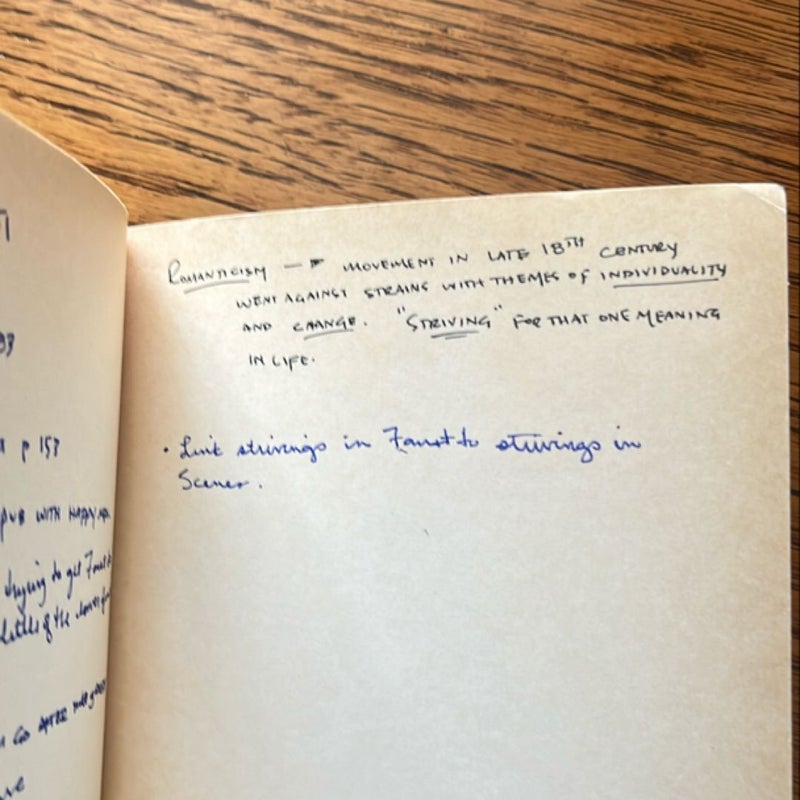 p 157
PUB WITH HAPPY
trying to get Faust
of the
GO AFTER
ROMANTICISM → MOVEMENT IN LATE 18TH CENTURY
WENT AGAINST STRAINS WITH THEMES OF INDIVIDUALITY
AND CHANGE. "STRIVING" FOR THAT ONE MEANING
IN LIFE.
• Link strivings in Faust to strivings in
Scenes.